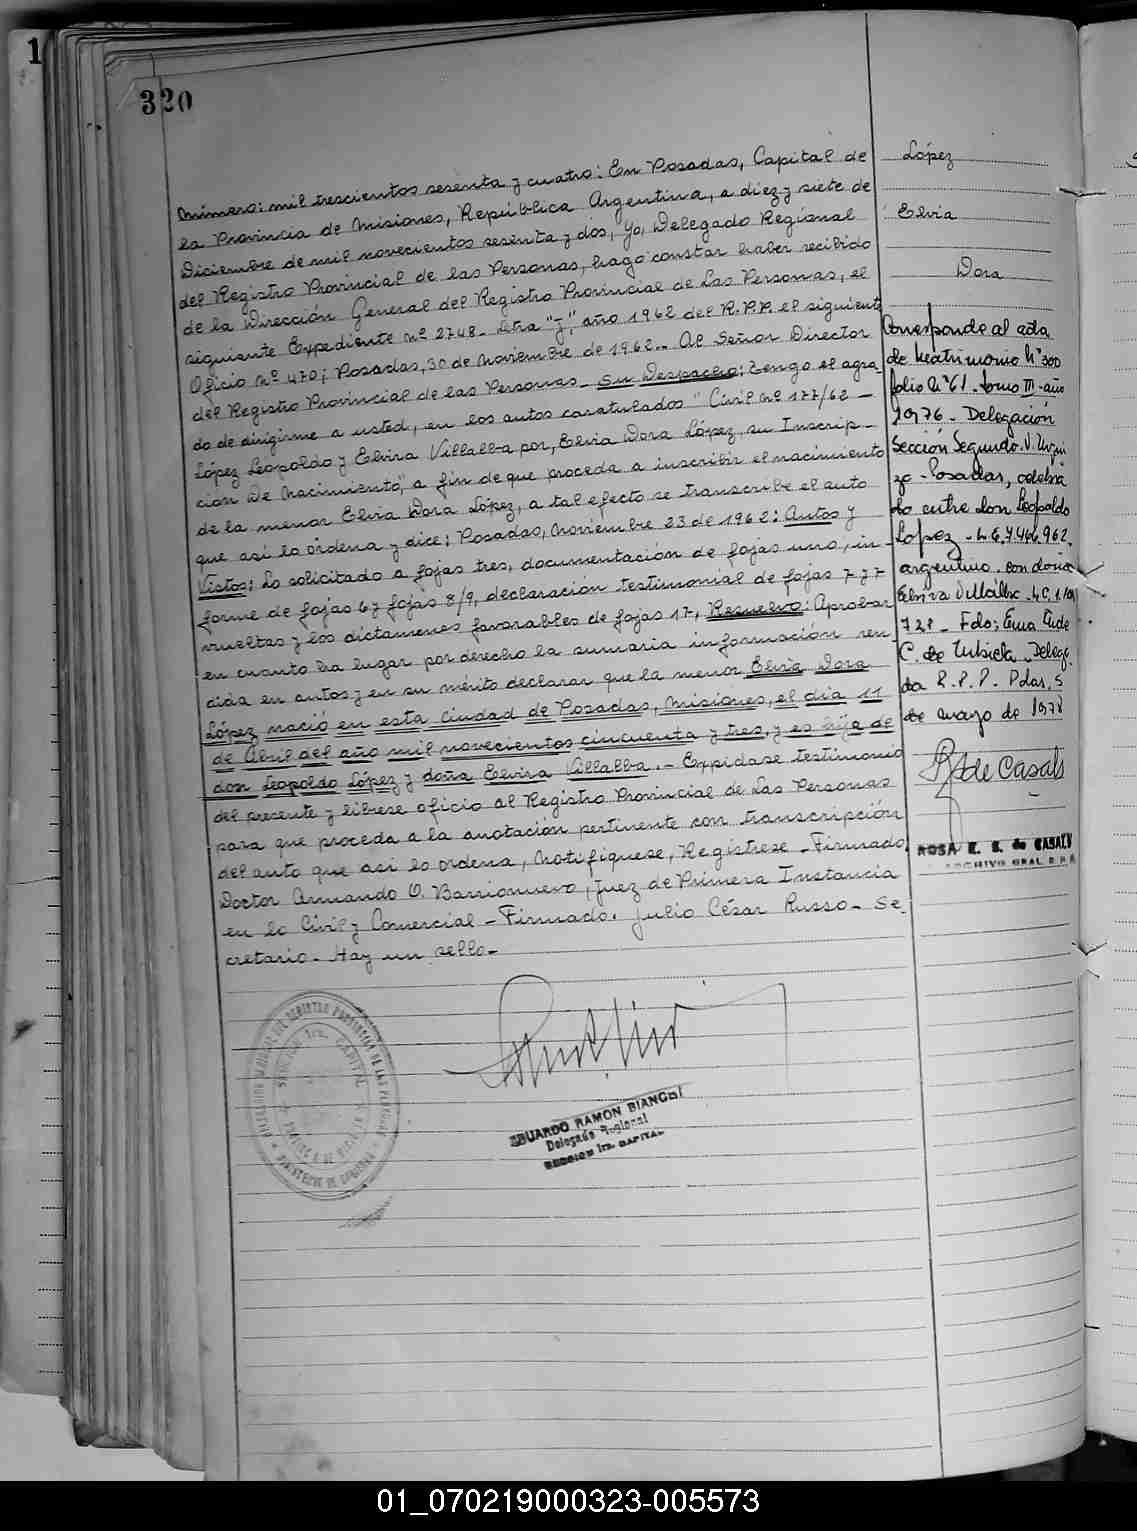 1
320
Número: mil trescientos sesenta y cuatro: En Posadas, Capital de
la Provincia de Misiones, República Argentina, a diez y siete de
Diciembre de mil novecientos sesenta y dos, Yo, Delegado Regional
del Registro Provincial de las Personas, hago constar haber recibido
de la Dirección General del Registro Provincial de Las Personas, el
siguiente Expediente nº 2748- Letra "J", año 1962 del R.P.P. el siguiente
Oficio Nº 470; Posadas, 30 de Noviembre de 1962.- Al Señor Director
del Registro Provincial de las Personas- Su Despacho: Tengo el agra-
do de dirigirme a usted, en los autos caratulados "Civil nº 177/62 -
López Leopoldo y Elvira Villalba por, Elvia Dora López, su Inscrip-
ción De Nacimiento", a fin de que proceda a inscribir el nacimiento
de la menor Elvia Dora López, a tal efecto se transcribe el auto
que así lo ordena y dice: Posadas, Noviembre 23 de 1962: Autos y
Vistos: Lo solicitado a fojas tres, documentación de fojas uno, in-
forme de fojas 6 y fojas 8/9, declaración testimonial de fojas 7 y 7
vueltas y los dictamenes favorables de fojas 17, Resuelvo: Aprobar
en cuanto ha lugar por derecho la sumaria información ren
dida en autos y en su mérito declarar que la menor Elvia Dora
López nació en esta Ciudad de Posadas, Misiones, el día 11
de Abril del año mil novecientos cincuenta y tres, y es hija de
don Leopoldo López y doña Elvira Villalba.- Expídase testimonio
del presente y líbrese oficio al Registro Provincial de Las Personas
para que proceda a la anotación pertinente con transcripción
del auto que así lo ordena, Notifíquese, Regístrese - Firmado
Doctor Armando O. Barrionuevo, Juez de Primera Instancia
en lo Civil y Comercial - Firmado. Julio César Russo- Se-
cretario- Hay un sello-
EDUARDO RAMON BIANCHI
Delegado Regional
SECCION 1ra. CAPITAL
López
Elvia
Dora
Corresponde al acta
de Matrimonio Nº 300
folio Nº 61. tomo III- año
1976- Delegación
Sección Segunda. V. Urqui
za- Posadas, celebra
do entre don Leopoldo
Lopez- L.E. 7.466.962.
argentino. con doña
Elvira Villalba- L.C.
728- Fdo:
C. de Urbieta- Delega
da R.P.P. Pdas, 5
de mayo de 1978
R de Casals
ROSA E. G. de CASALS
ARCHIVO GRAL R.P.P.
01_070219000323-005573